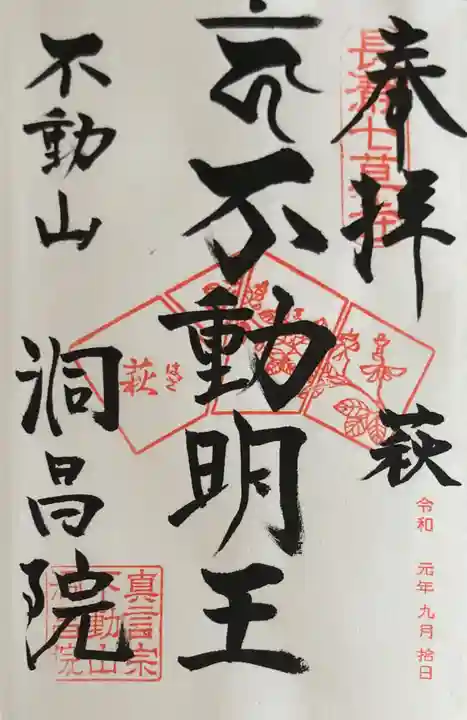 奉拝
長瀞七草寺
萩
令和 元年 九月 拾日
不動明王
萩
はぎ
不動山
洞昌院
真言宗
不動山
洞昌院